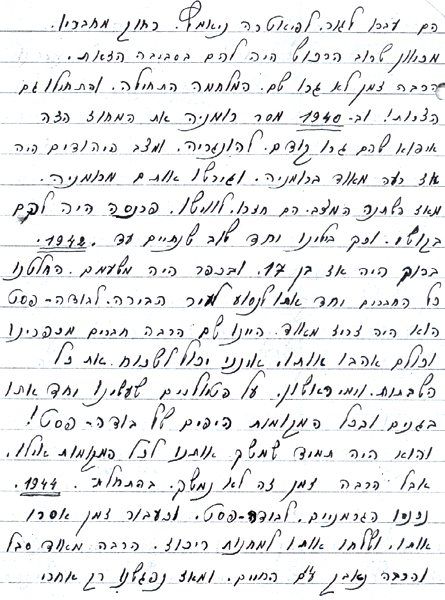 הם עברו לגור, לפיאטרה ניאמץ. רחוק מחבריו.
מכיוון שרוב הרכוש היה להם בסביבה הזאת.
הרבה זמן לא גרו שם. המלחמה התחילה. והתחלו גם
הצרות! וב-1940 מסר רומניה את המחוז הזה
איפוא שהם גרו קודם. להונגריה. ומצב היהודים היה
אז רעה מאוד ברומניה. וגירשו אותם מרומניה.
מאז השתנה המצב. הם חזרו. פרנסה היה להם
בקושי. וכך בילינו יחד עוד שנתיים עד 1942.
ברוך היה אז בן 17. ובכפר היה משעמם. החלטנו
כל החברים יחד אתו לנסוע לעיר הבירה. לבודה-פסט
הוא היה זריז מאוד. היינו שם הרבה חברים מכפרינו
וכולם אהבו אותו. אינני יכול לשכוח את כל
השבתות. וימי ראשון. על הטיולים שעשינו יחד אתו
בגנים ובכל המקומות היפים של בודה-פסט!
והוא היה תמיד שמשך אותנו לכל המקומות אילו.
אבל הרבה זמן זה לא נמשך. בהתחלת 1944.
נכנסו הגרמניים. לבודה-פסט. וכעבור זמן אסרו
אותו. ושלחו אותו למחנות ריכוז. הרבה מאוד סבל
והרבה נאבק עם החיים. ומאז נפגשנו רק אחרי